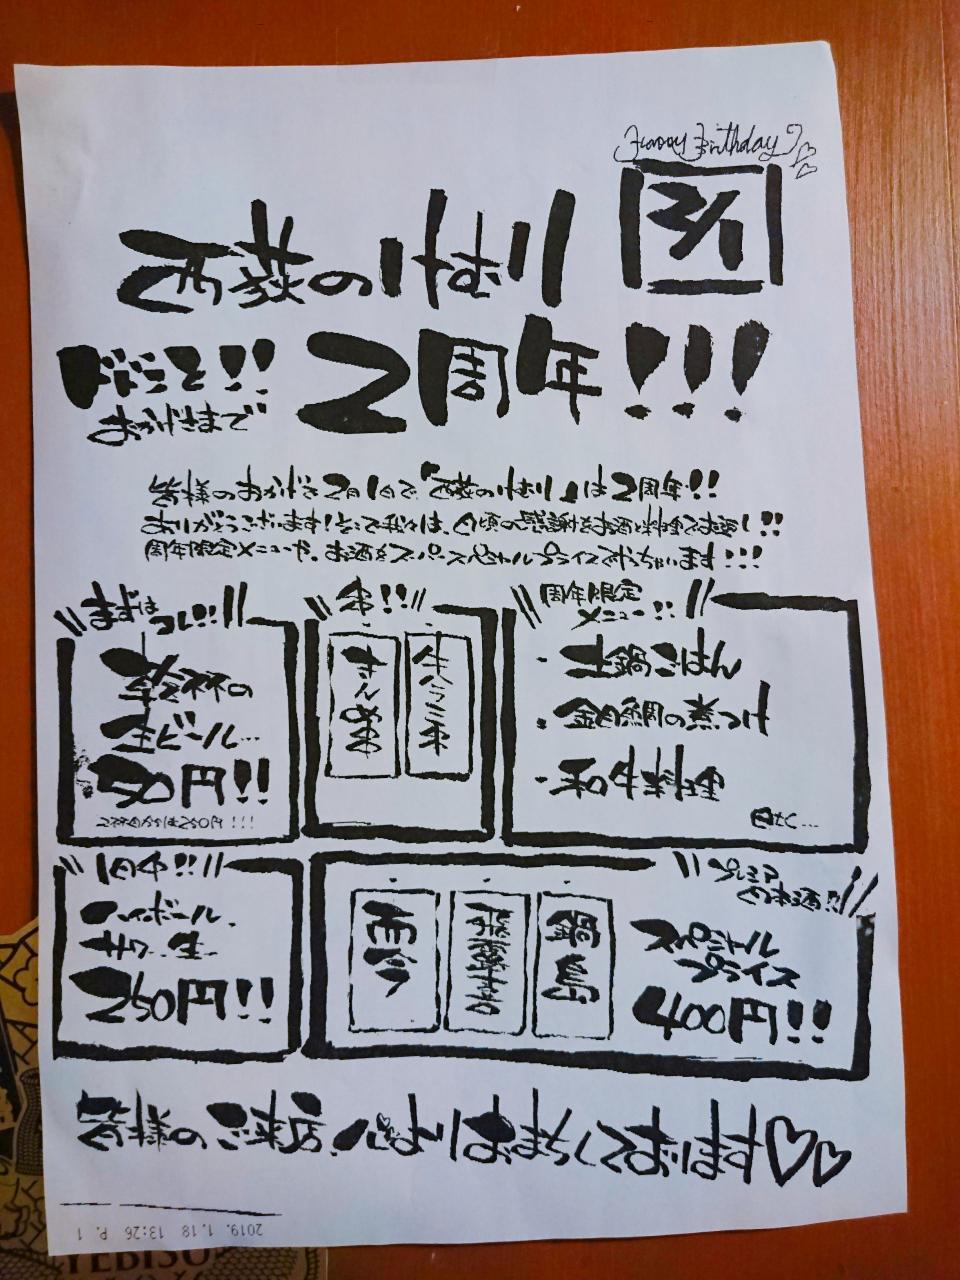 Happy Birthday
2/1
西荻のけむり
ドドンと!!
おかげさまで
2周年!!!
皆様のおかげで2月1日で『西荻のけむり』は2周年!!
ありがとうございます!そこで我々は、日頃の感謝をお酒と料金でお返し!!
周年限定メニューや、お酒をスペシャルプライスでやっちゃいます!!!
まずはコレ!!
一杯の
生ビール…
50円!!
2杯目からは250円!!!
串!!
生ラム串
きんめ串
周年限定
メニュー!!
・土鍋ごはん
・金目鯛の煮つけ
・和牛料理
etc...
1日中!!
ハイボール、
サワー、生…
250円!!
プレミア
日本酒!!
スペシャル
プライス
400円!!
鍋島
飛露喜
而今
皆様のご来店、心よりおまちしております
2019. 1.18 13:26 P. 1
YEBISU